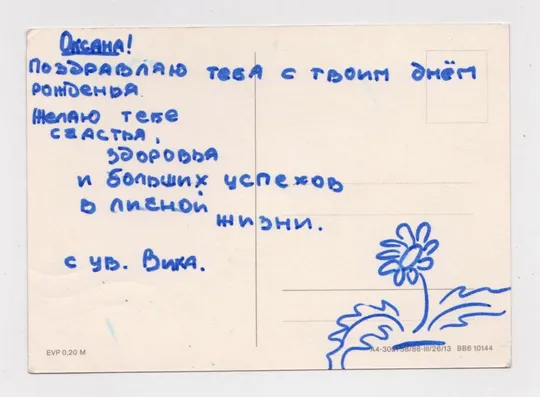 Оксана!
Поздравляю тебя с твоим днём
рожденья
Желаю тебе
счастья,
здоровья
и больших успехов
в личной
жизни.
с ув. Вика.
EVP 0,20 M
BB6 10144